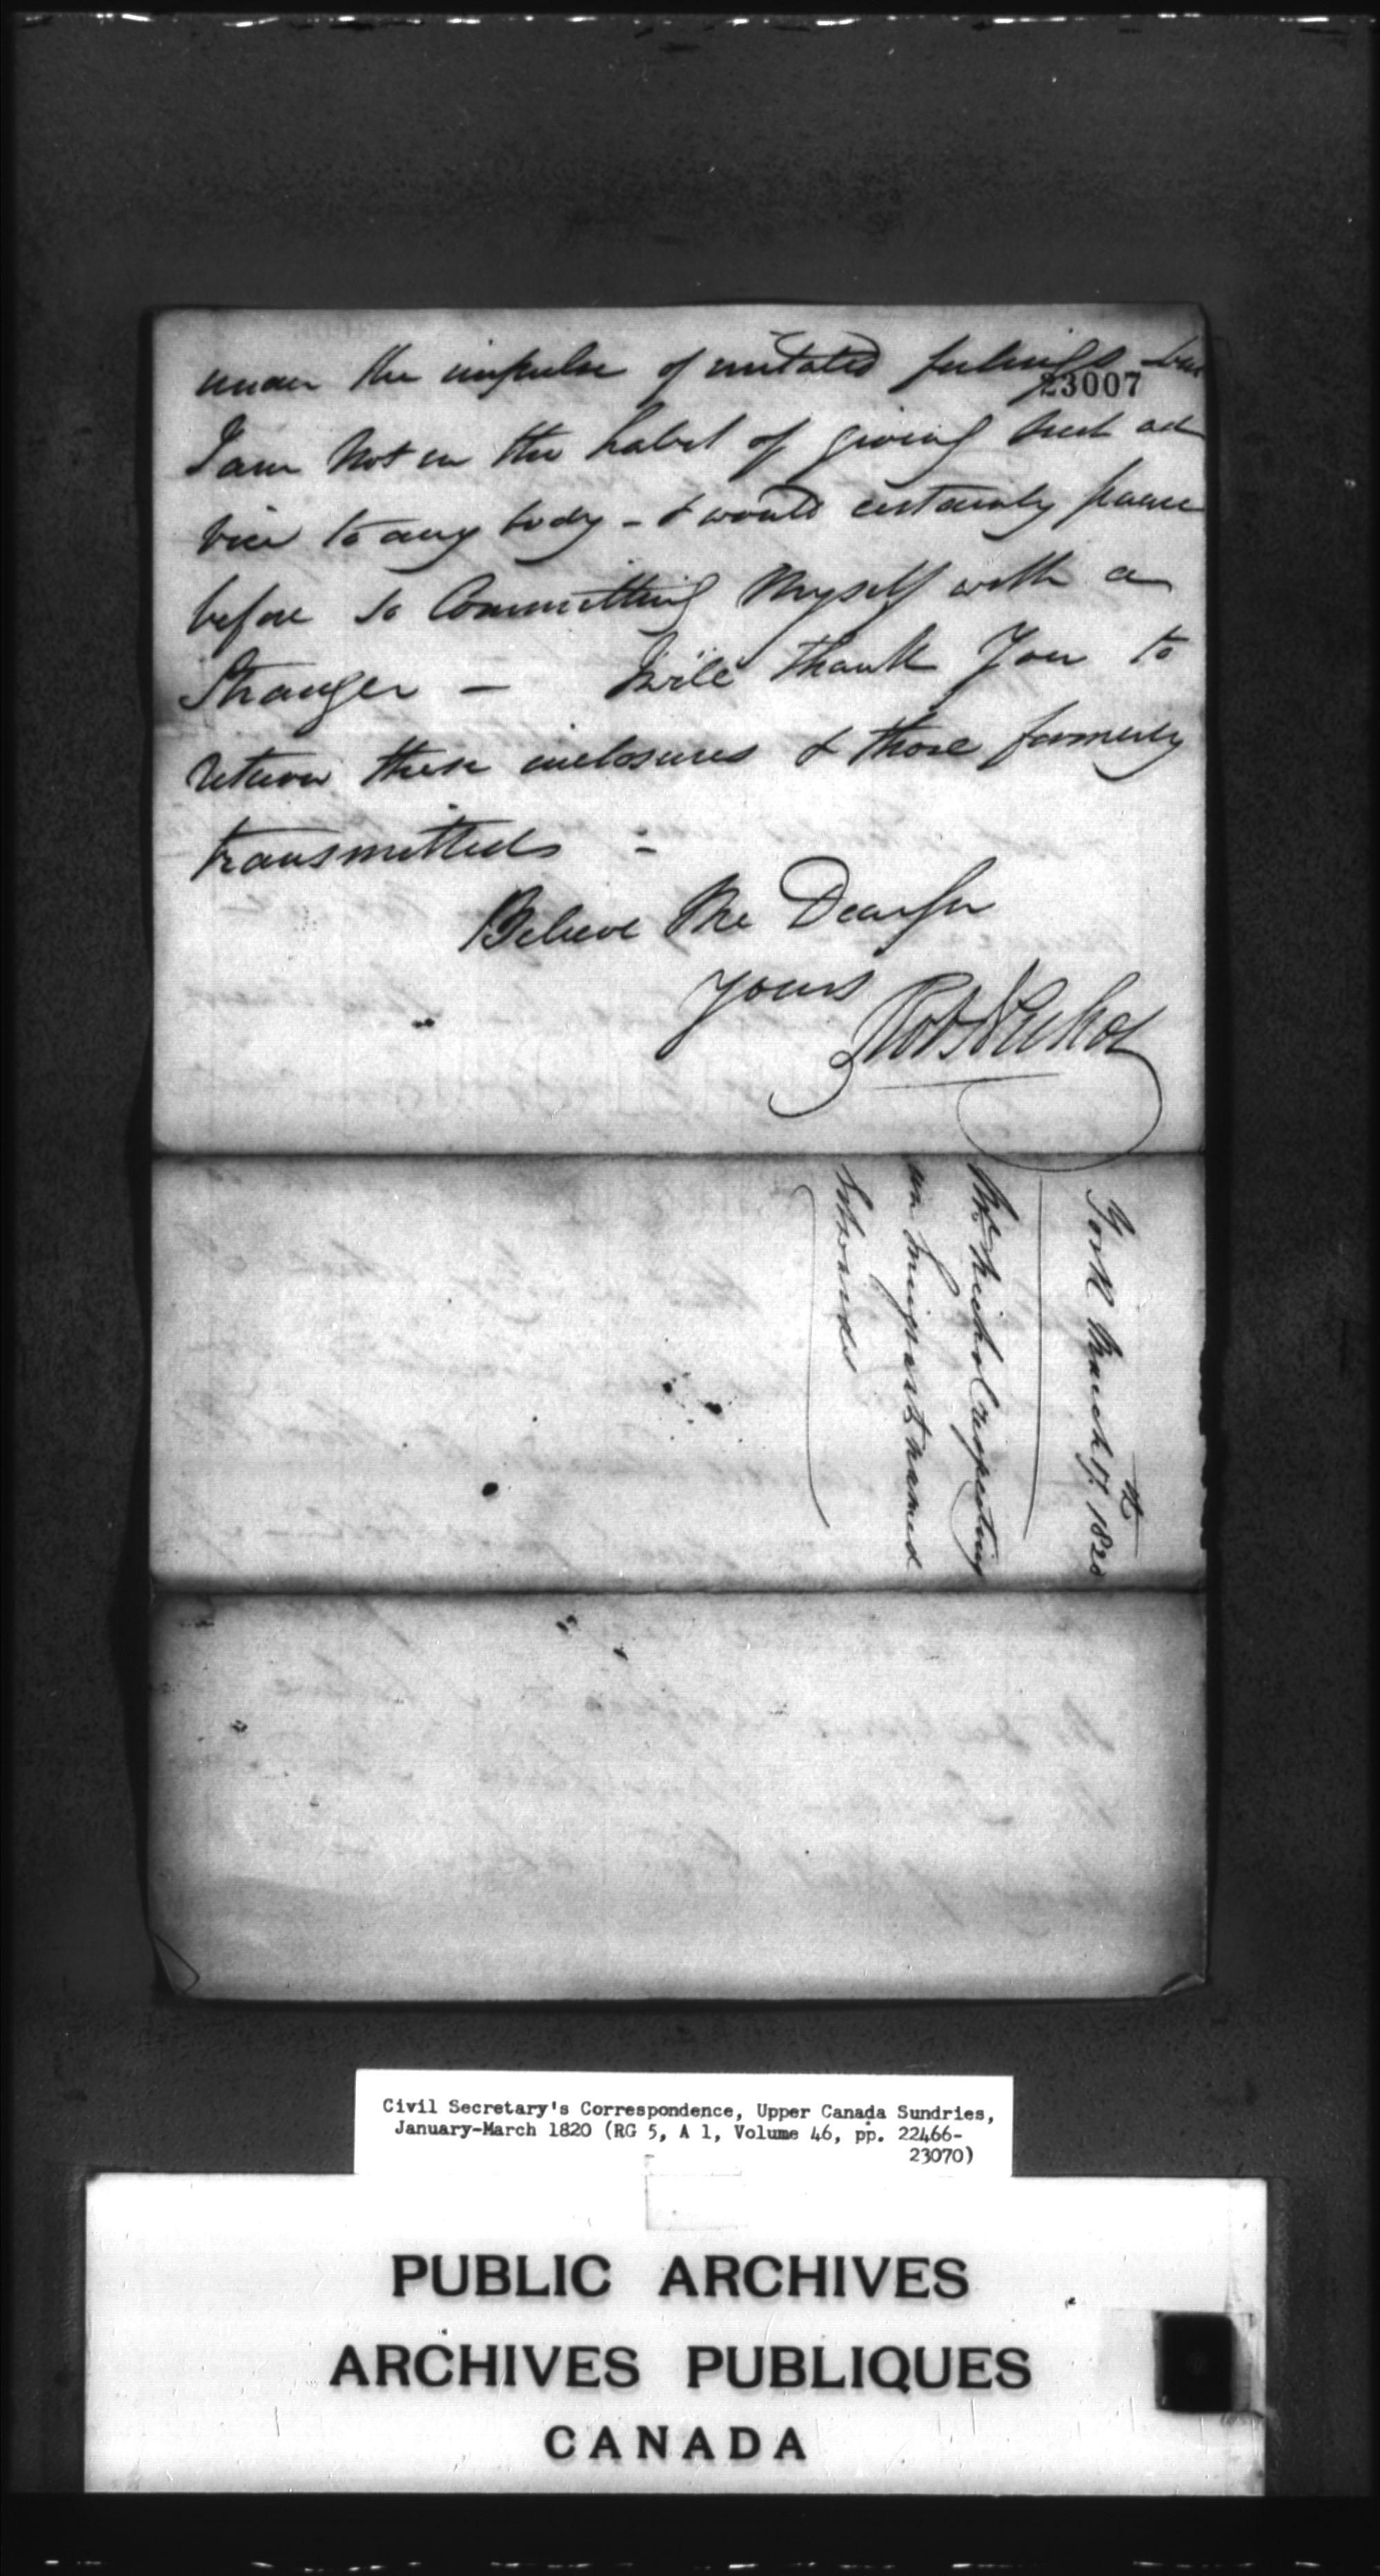 under the impulse of irritated feelings – but
23007
I am not in the habit of giving such ad
vice to any body – & would certainly pause
before so Committing Myself with a
Stranger – I will thank You to
return these inclosures & those formerly
transmitted –
Believe Me Dear Sir
Yours
Robt Nichol
York March 17th 1820
Mr Nichol respecting
an Emigrant named
Edwards
Civil Secretary's Correspondence, Upper Canada Sundries,
January-March 1820 (RG 5, A 1, Volume 46, pp. 22466-
23070)
PUBLIC ARCHIVES
ARCHIVES PUBLIQUES
CANADA